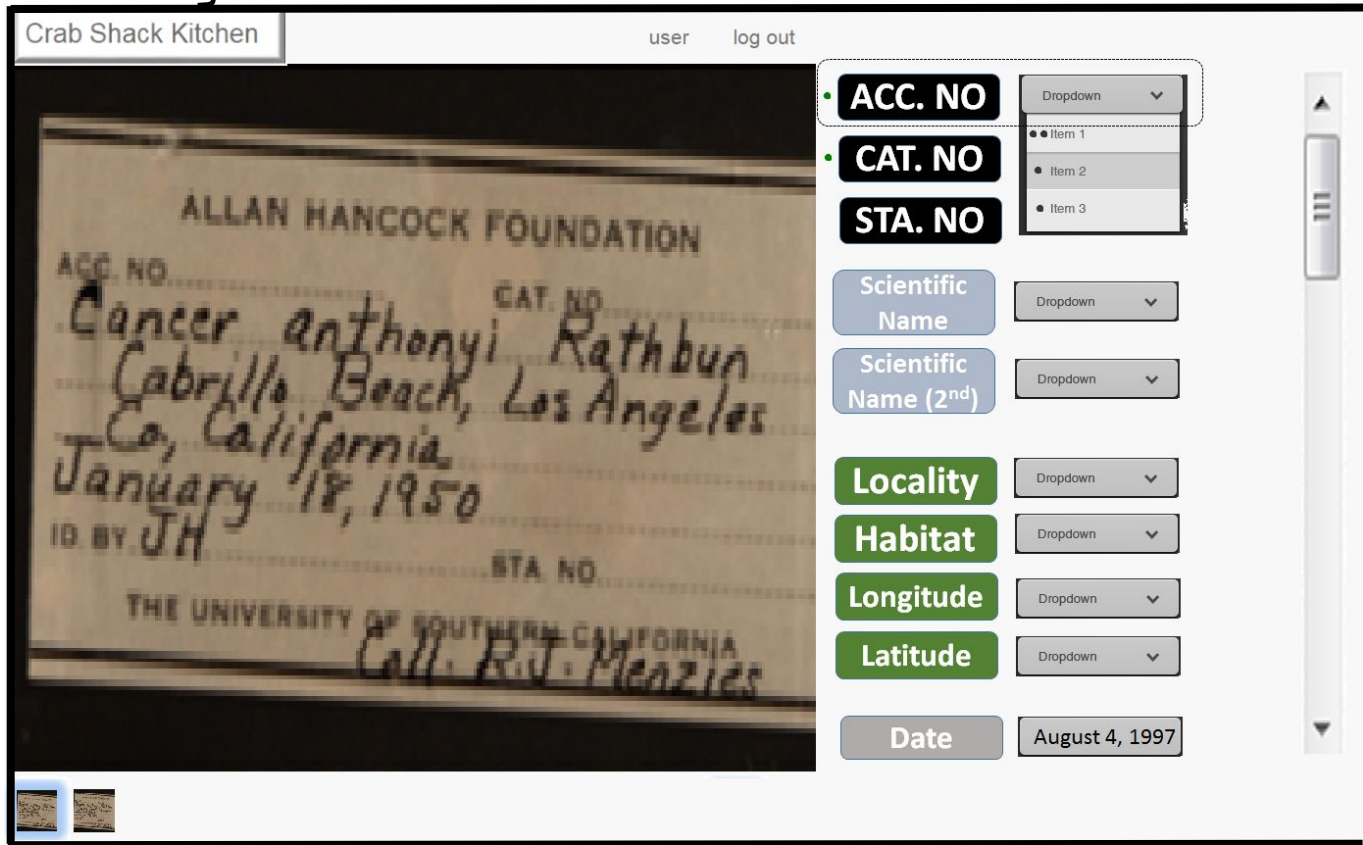 Crab Shack Kitchen
user log out
ALLAN HANCOCK FOUNDATION
ACC. NO. CAT. NO.
Cancer anthonyi Rathbun
Cabrillo Beach, Los Angeles
Co, California
January 18, 1950
ID. BY JH STA. NO.
THE UNIVERSITY OF SOUTHERN CALIFORNIA
Coll. R.J. Menzies
ACC. NO Dropdown
Item 1
CAT. NO
Item 2
STA. NO Item 3
Scientific
Name Dropdown
Scientific
Name (2nd) Dropdown
Locality Dropdown
Habitat Dropdown
Longitude Dropdown
Latitude Dropdown
Date August 4, 1997